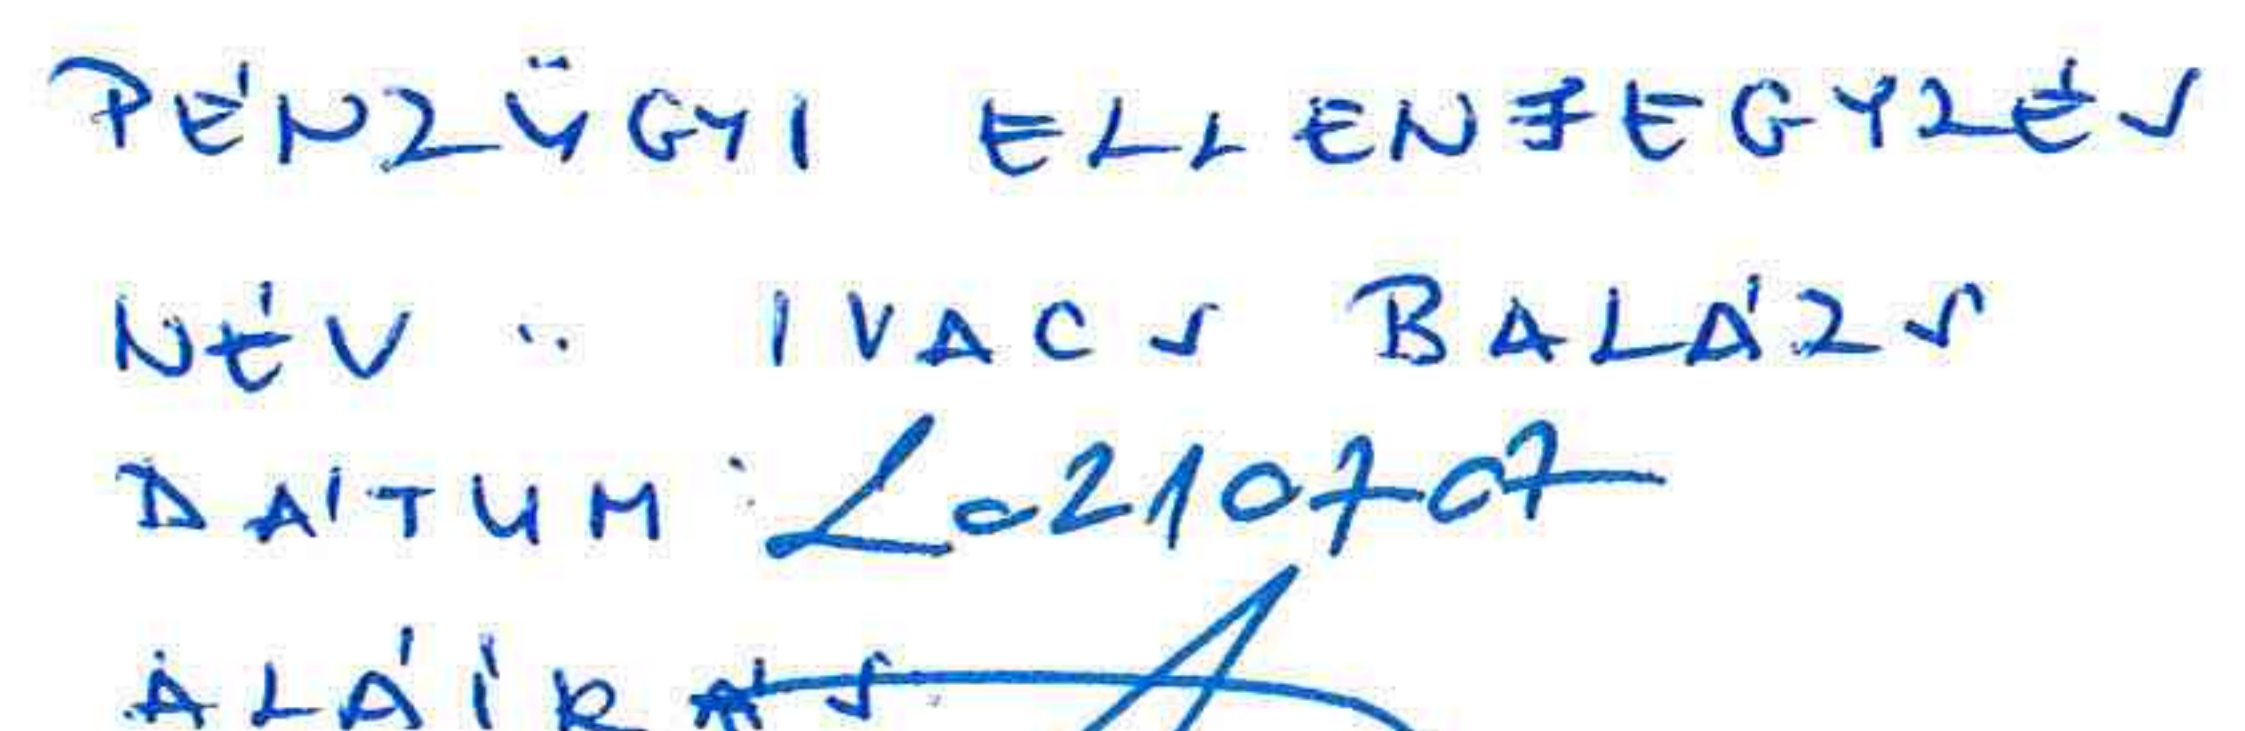 PÉNZÜGYI ELLENJEGYZÉS
NÉV: IVACS BALÁZS
DÁTUM: 20210707
ALÁÍRÁS: